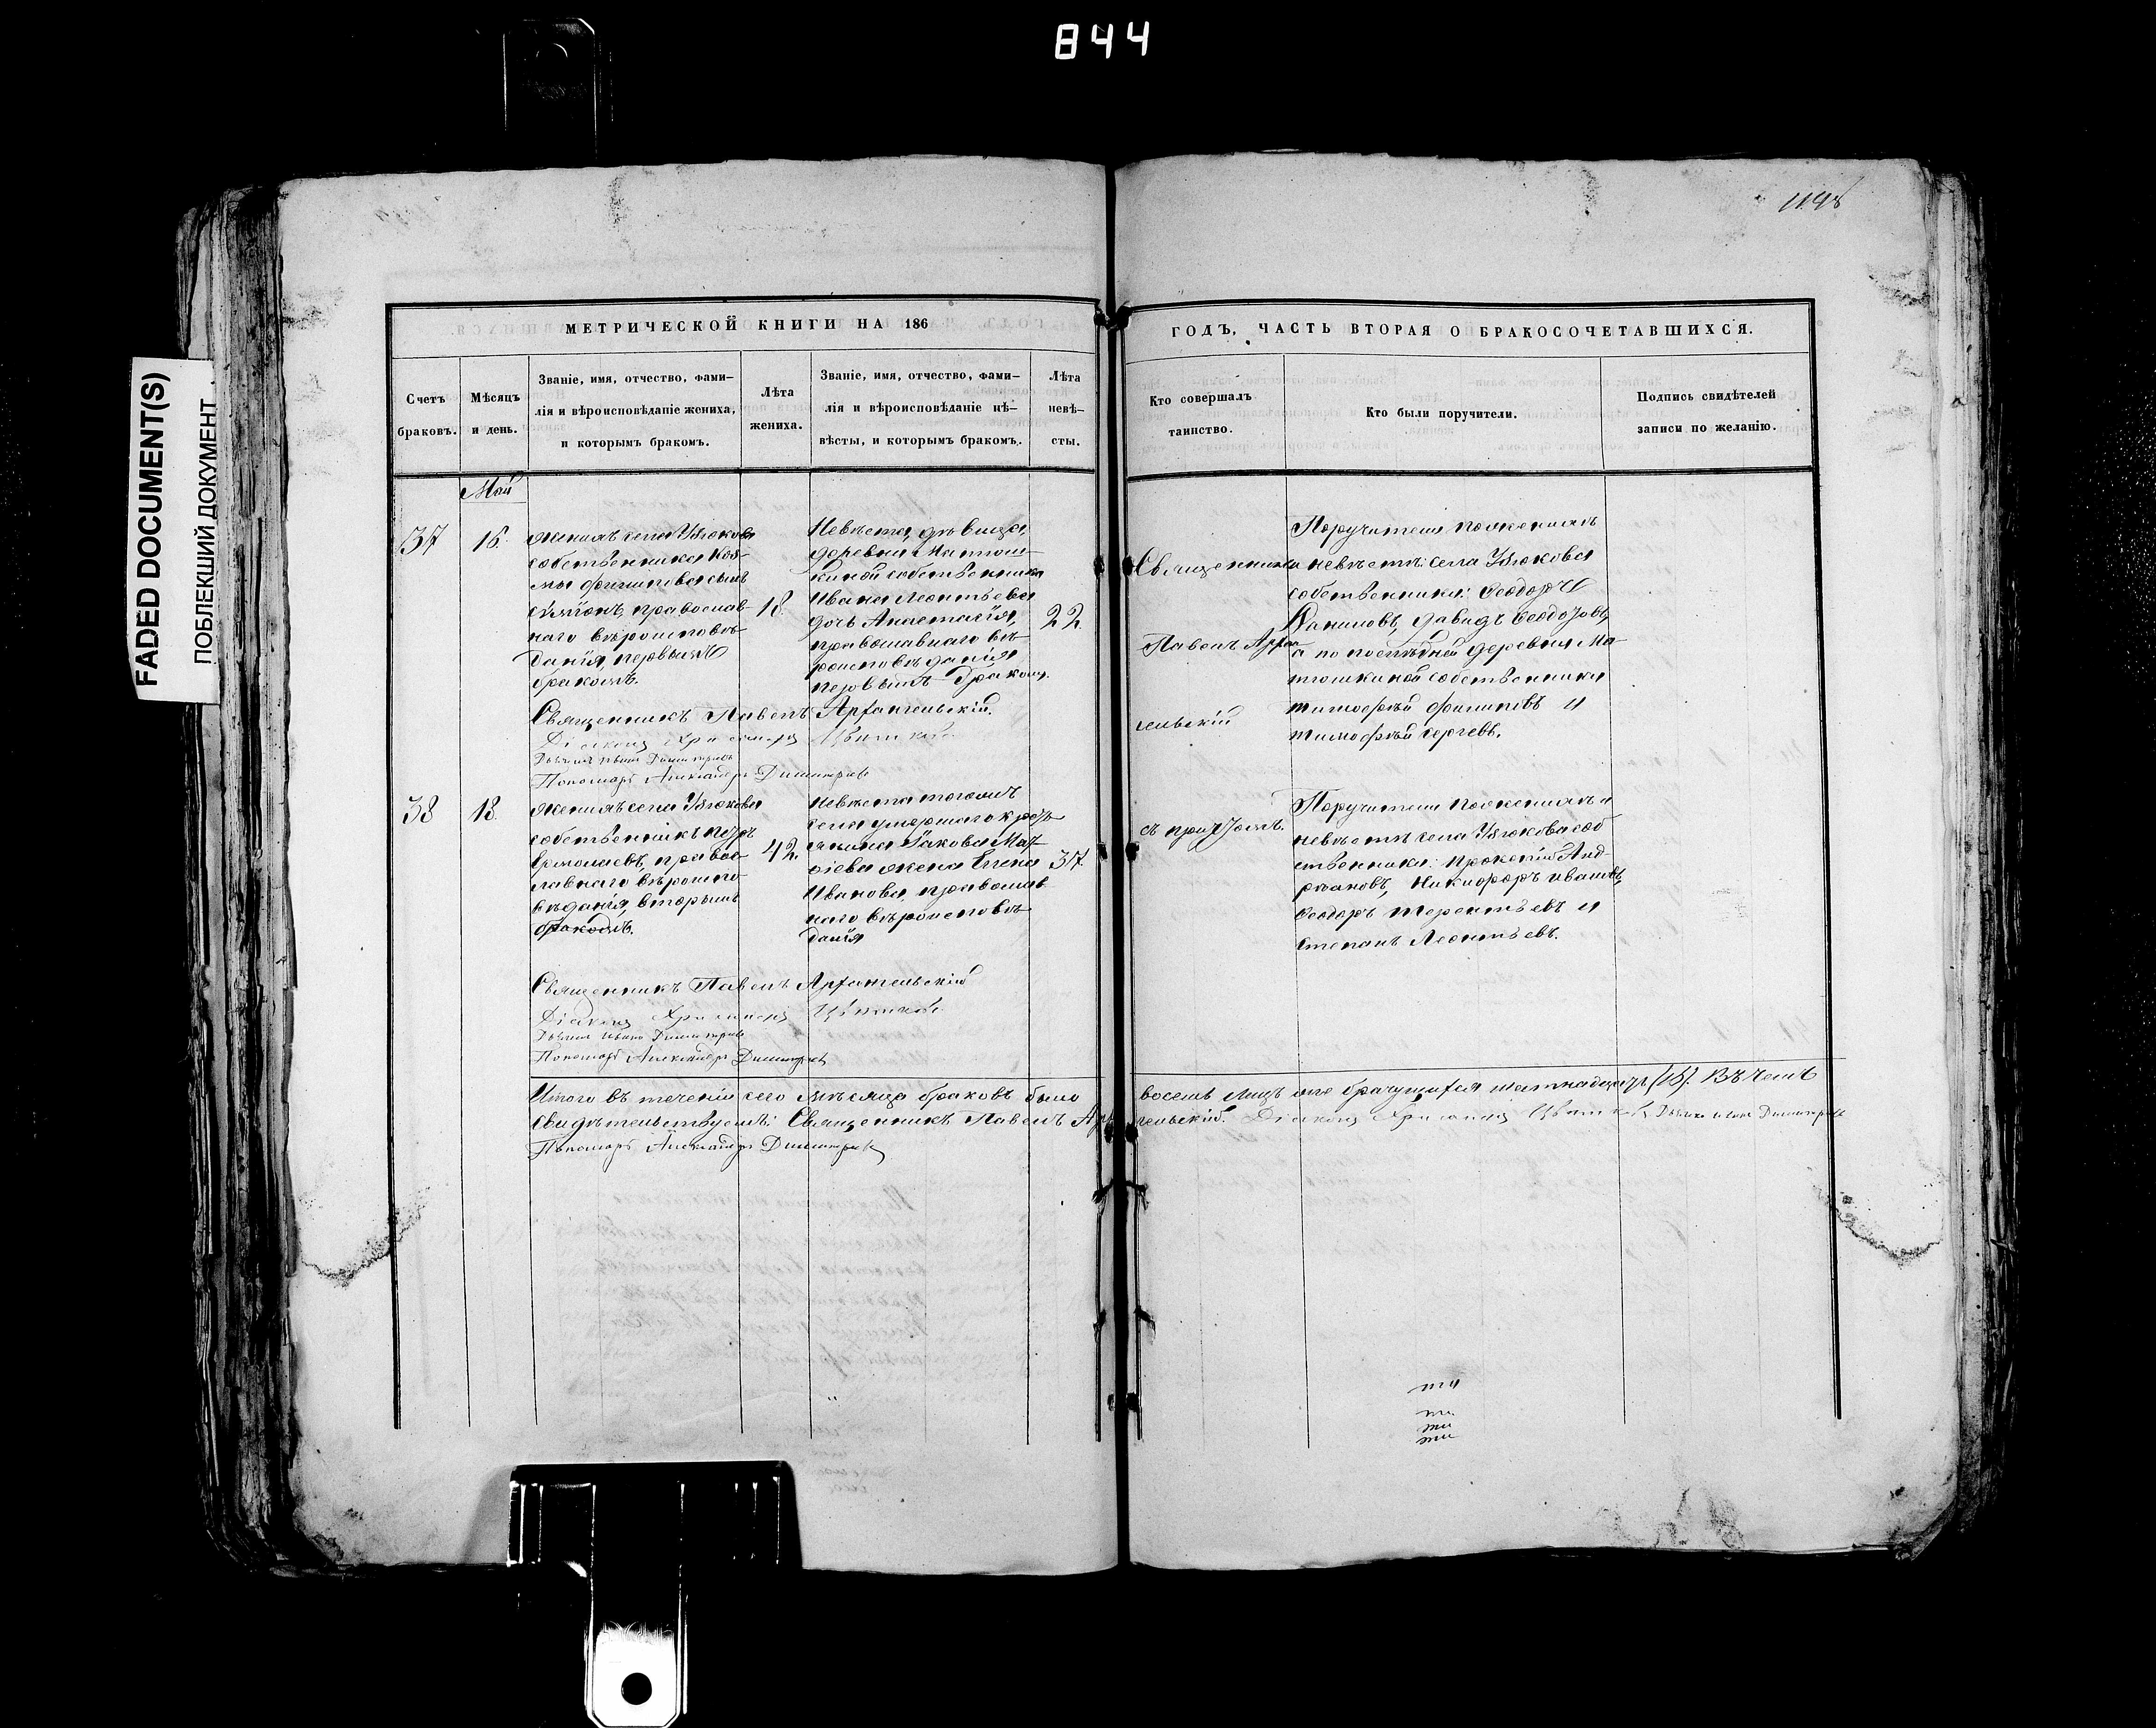 844
1148
FADED DOCUMENT(S)
ПОБЛЕКШИЙ ДОКУМЕНТ
МЕТРИЧЕСКОЙ КНИГИ НА 186
ГОДЪ, ЧАСТЬ ВТОРАЯ О БРАКОСОЧЕТАВШИХСЯ.
Счетъ
браковъ.
Мѣсяцъ
и день.
Званіе, имя, отчество, фами-
лія и вѣроисповѣданіе жениха,
и которымъ бракомъ.
Лѣта
жениха.
Званіе, имя, отчество, фами-
лія и вѣроисповѣданіе не-
вѣсты, и которымъ бракомъ.
Лѣта
невѣ-
сты.
Кто совершалъ
таинство.
Кто были поручители.
Подпись свидѣтелей
записи по желанію.
Май
37
18.
Женихъ села Узюкова
собственника Коз-
мы Филипова сынъ
Сѵмеонъ, православ-
наго вѣроисповѣ-
данія, первымъ
бракомъ.
18.
Невѣста, дѣвица,
деревни Матюш-
киной собственника
Ивана Леонтьева
дочь Анастасія,
православнаго вѣ-
роисповѣданія
первымъ бракомъ.
22
Священникъ
Павелъ Арха
гельскій
съ причтомъ.
Поручители по женихѣ
и невѣстѣ: села Узюкова
собственники: Ѳеодоръ
Даниловъ, Давидъ Ѳеодоровъ,
а по послѣдней деревни Ма-
тюшкиной собственники
Тимофей Филиповъ и
Тимофей Сергѣевъ.
Священникъ Павелъ Архангельскій.
Діаконъ
Дьячекъ Иванъ Димитріевъ
Пономарь Александръ Димитріевъ
38
18.
Женихъ села Узюкова
собственникъ Петръ
Ермолаевъ, правос-
лавнаго вѣроиспо-
вѣданія, вторымъ
бракомъ.
42
Невѣста тогожъ
села умершаго кресть-
янина Іакова Мат-
ѳіева жена Елена
Иванова, православ-
наго вѣроисповѣ-
данія
37
Поручители по женихѣ и
невѣстѣ села Узюкова соб-
ственники: Анд-
реановъ, Никифоръ Ивановъ,
Ѳеодоръ Терентьевъ и
Степанъ Леонтьевъ.
Священникъ Павелъ Архангельскій
Діаконъ
Дьячекъ Иванъ Димитріевъ
Пономарь Александръ Димитріевъ
Итого въ теченіи сего мѣсяца браковъ было восемь лицъ же брачущихся шестнадцать (16). Въ чемъ
свидѣтельствуемъ: Священникъ Павелъ Архангельскій. Діаконъ Дьячекъ Иванъ Димитріевъ
Пономарь Александръ Димитріевъ